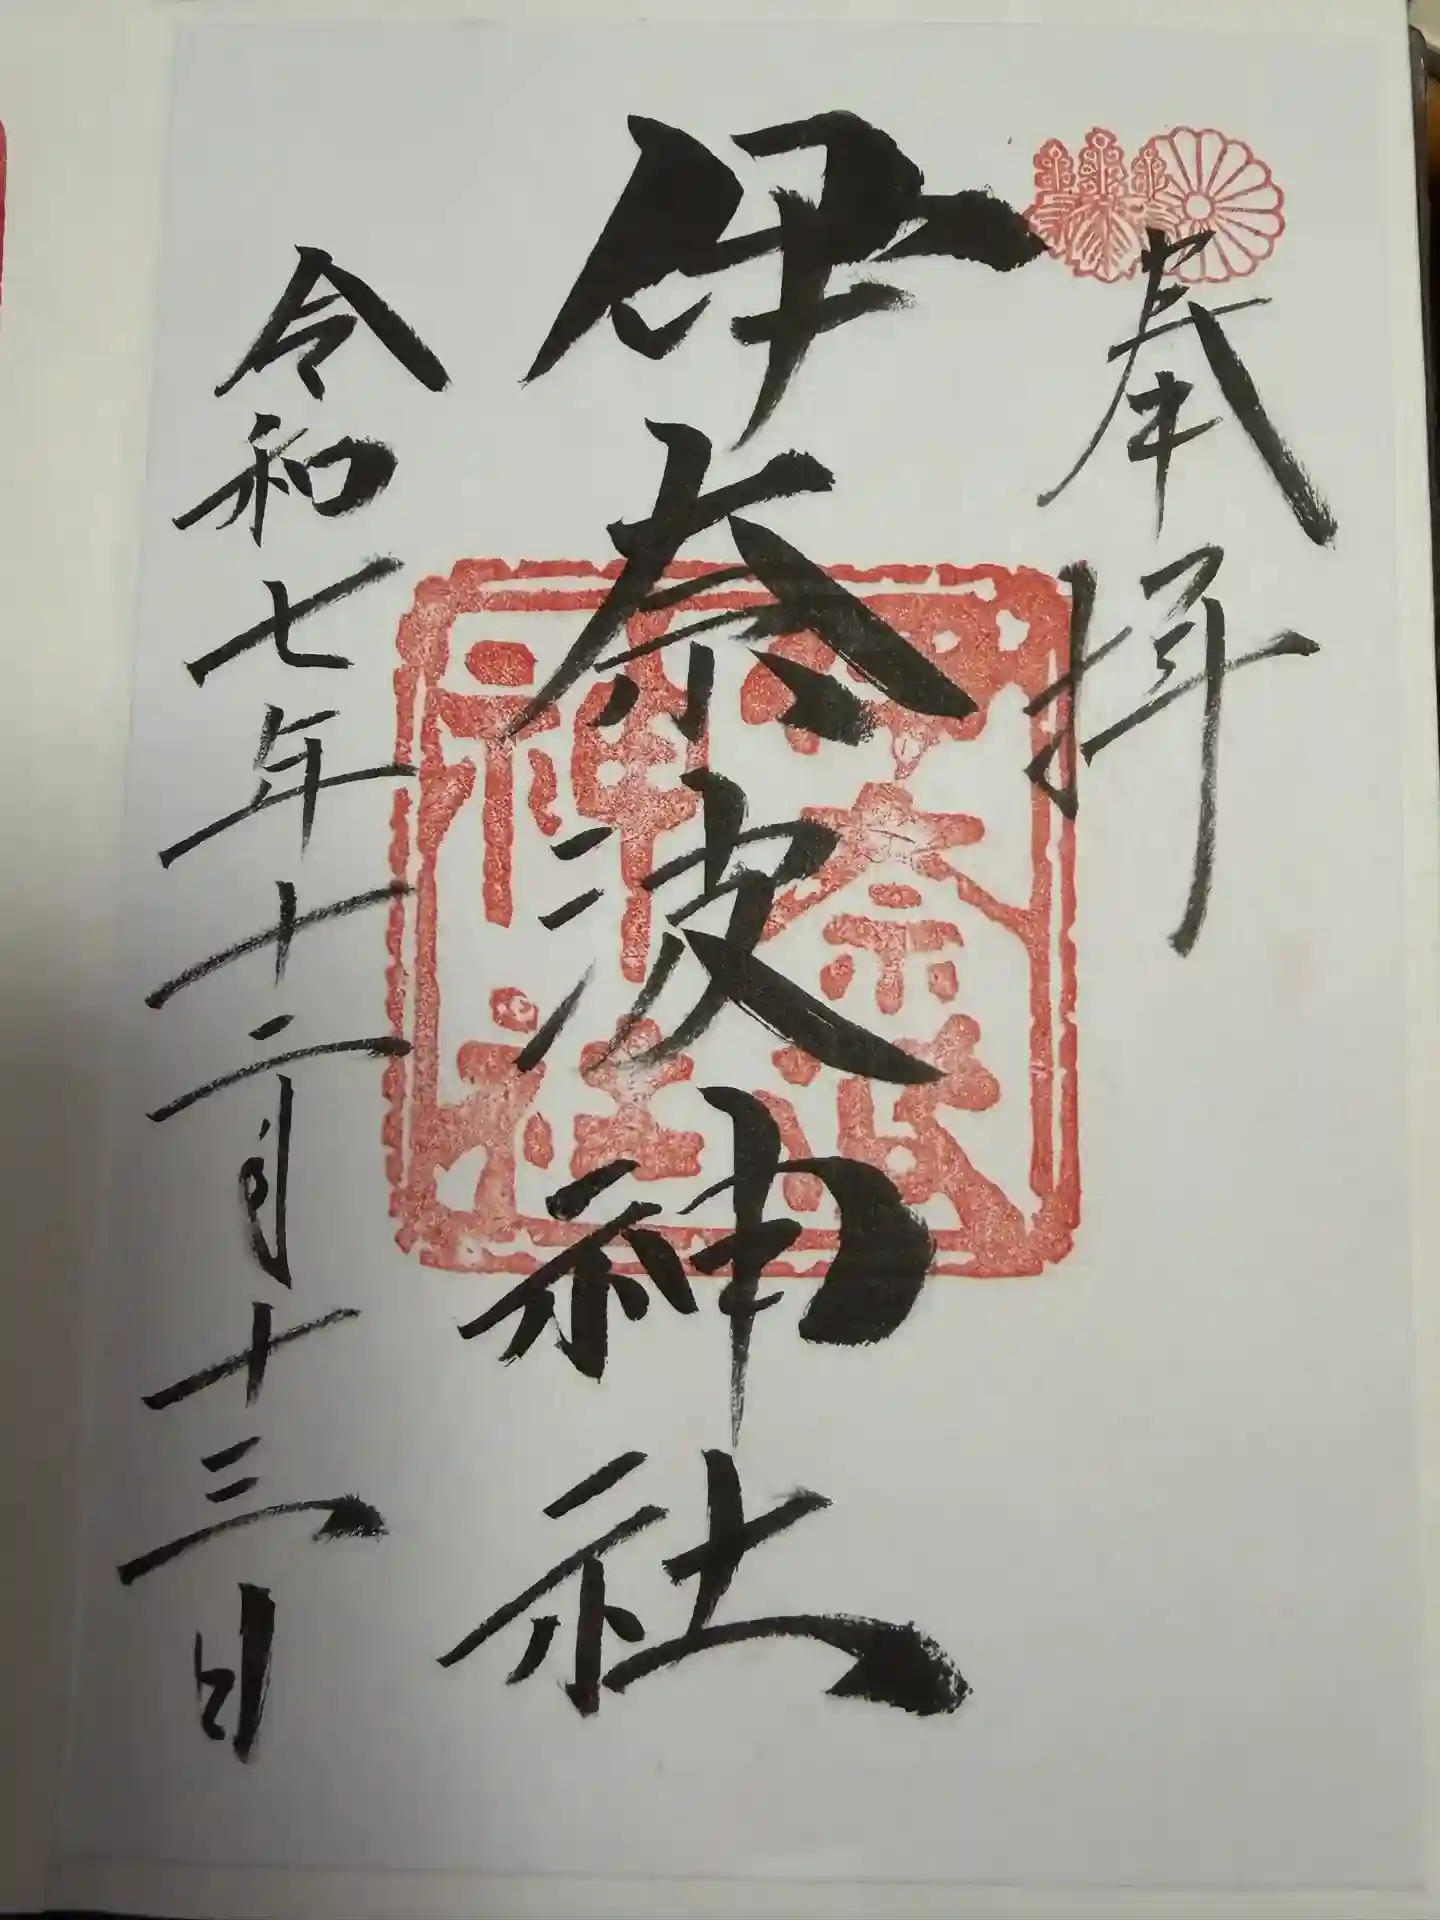 奉拝
伊奈波神社
伊奈波
神社
令和七年十二月十三日